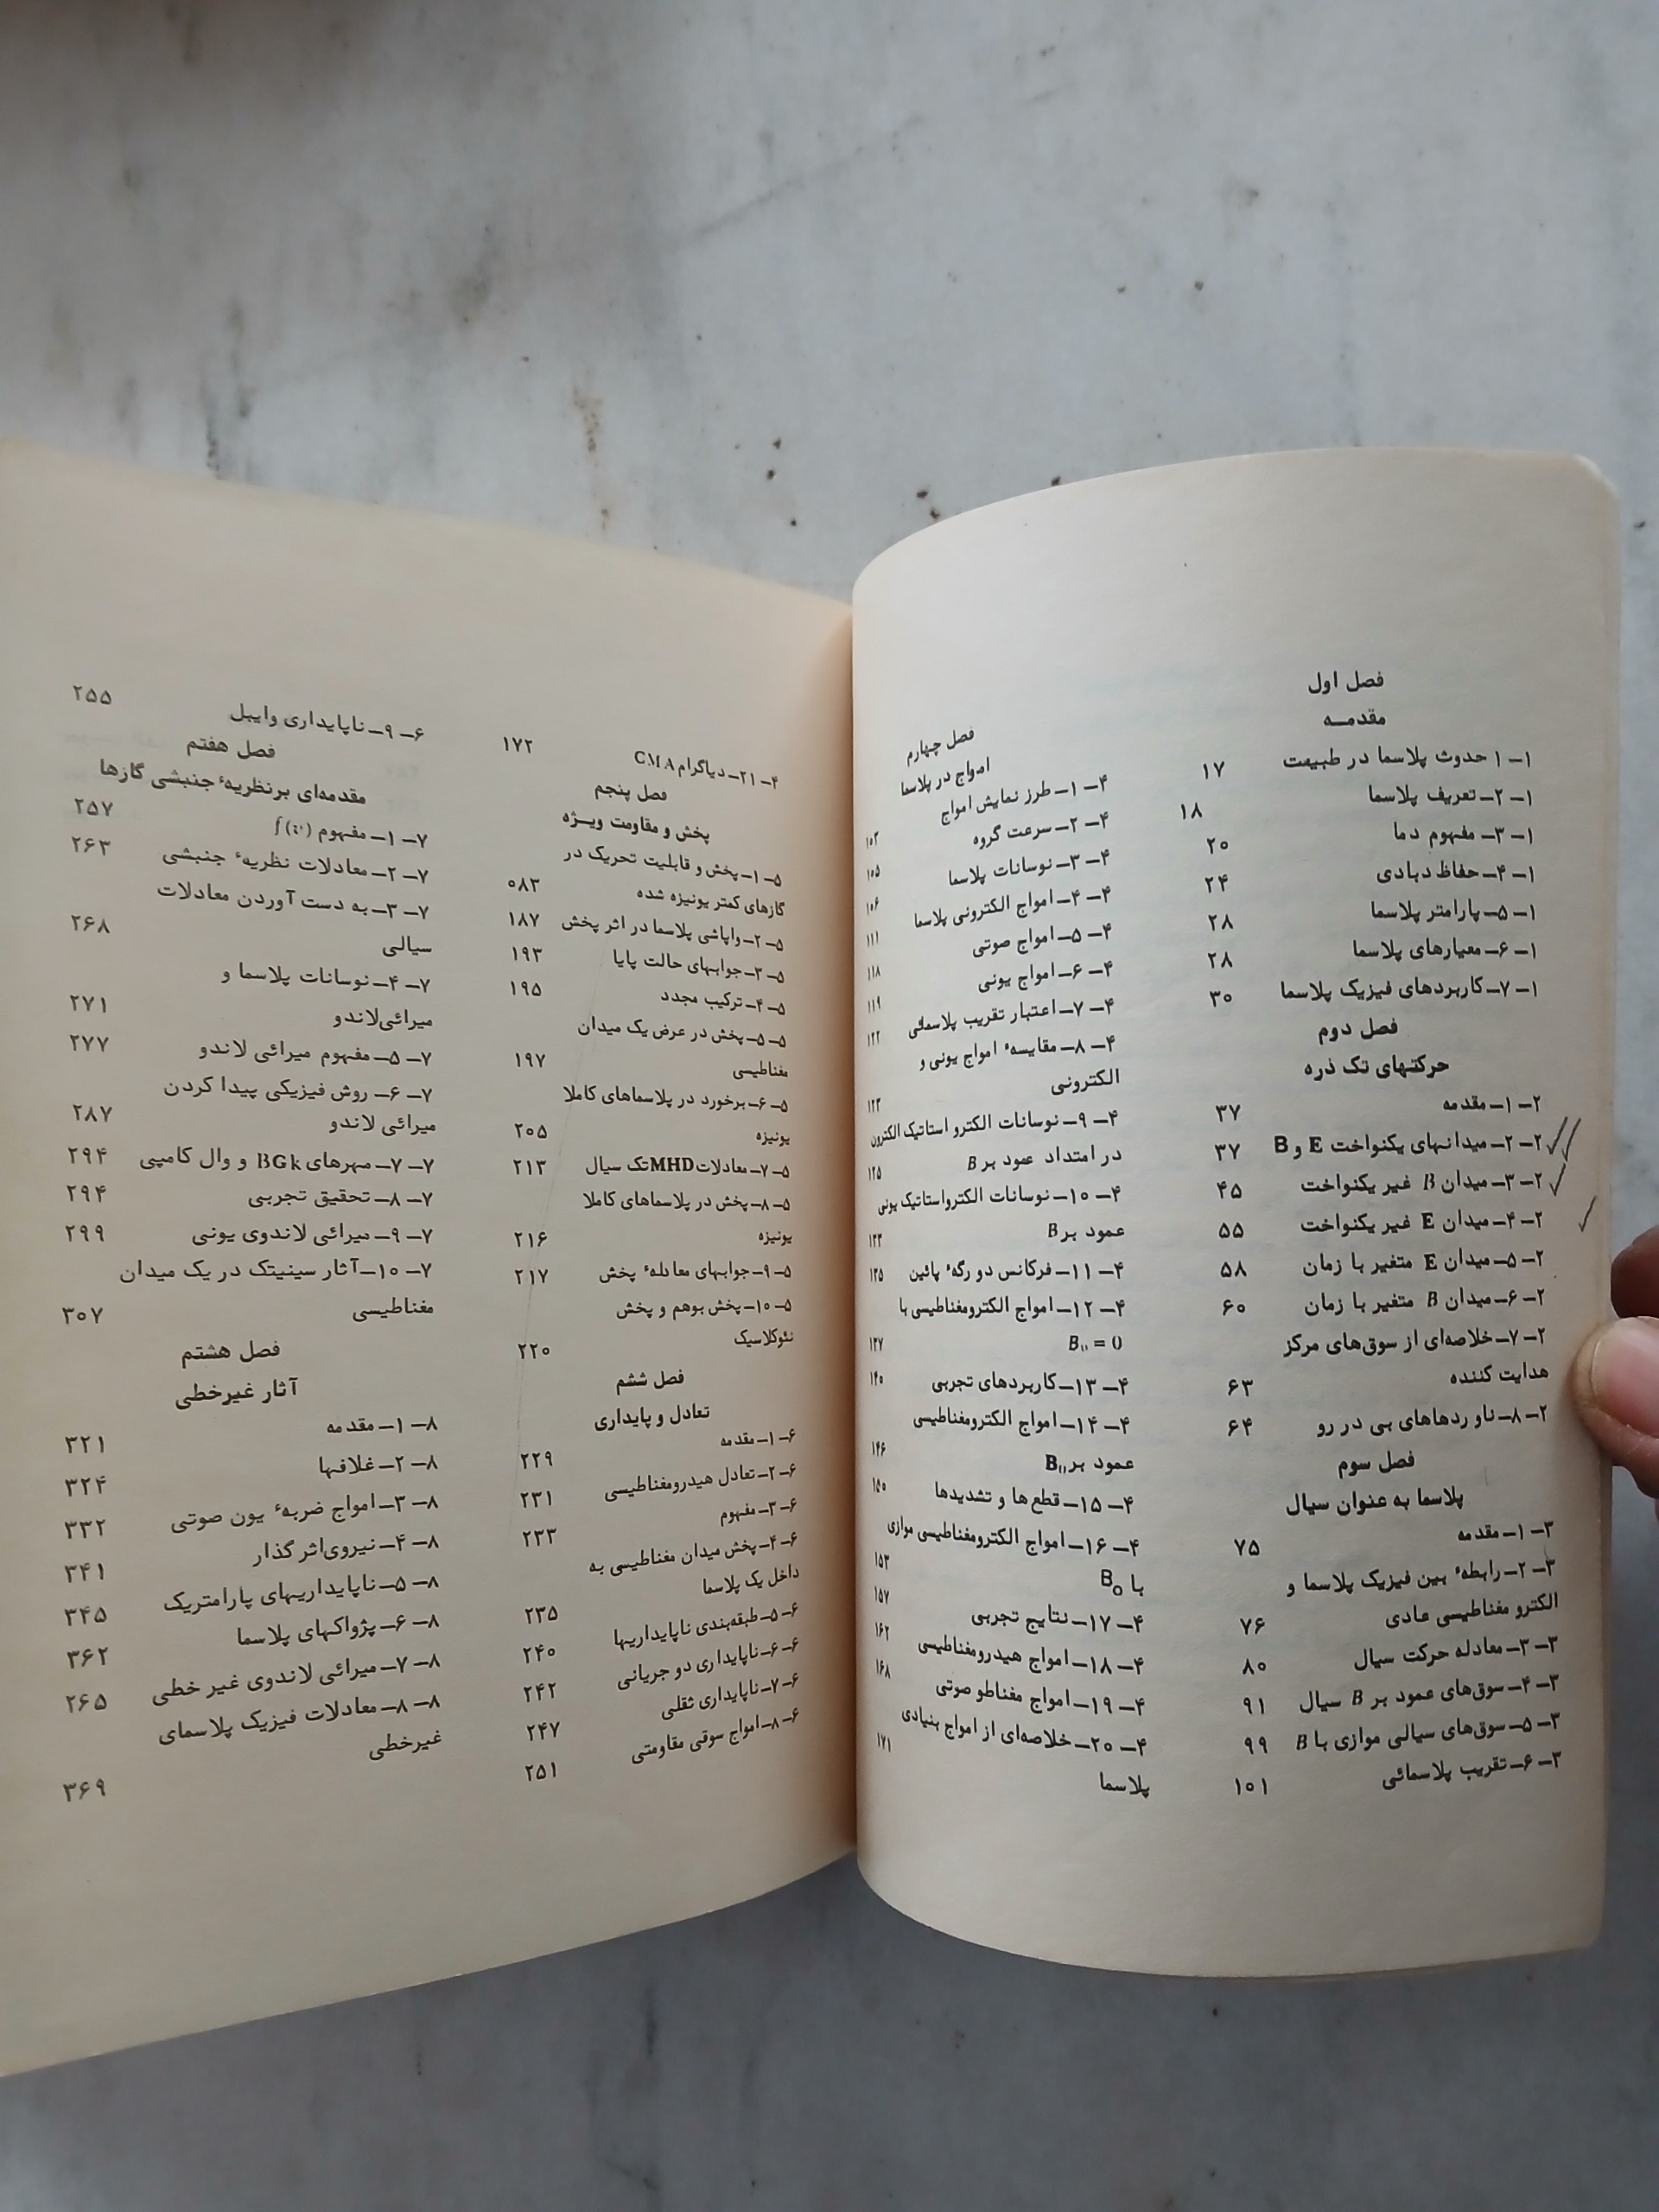 فصل اول
مقدمــه
۱ــ۱ حدوث پلاسما در طبیعت ۱۷
۱ــ۲ــ تعریف پلاسما ۱۸
۱ــ۳ــ مفهوم دما ۲۰
۱ــ۴ــ حفاظ دبادی ۲۴
۱ــ۵ــ پارامتر پلاسما ۲۸
۱ــ۶ــ معیارهای پلاسما ۲۸
۱ــ۷ــ کاربردهای فیزیک پلاسما ۳۰
فصل دوم
حرکتهای تک ذره
۲ــ۱ــ مقدمه ۳۷
۲ــ۲ــ میدانهای یکنواخت E و B ۳۷
۲ــ۳ــ میدان B غیر یکنواخت ۴۵
۲ــ۴ــ میدان E غیر یکنواخت ۵۵
۲ــ۵ــ میدان E متغیر با زمان ۵۸
۲ــ۶ــ میدان B متغیر با زمان ۶۰
۲ــ۷ــ خلاصه‌ای از سوق‌های مرکز
هدایت کننده ۶۳
۲ــ۸ــ ناوردهاهای بی در رو ۶۴
فصل سوم
پلاسما به عنوان سیال
۳ــ۱ــ مقدمه ۷۵
۳ــ۲ــ رابطهٔ بین فیزیک پلاسما و
الکترو مغناطیسی عادی ۷۶
۳ــ۳ــ معادله حرکت سیال ۸۰
۳ــ۴ــ سوق‌های عمود بر B سیال ۹۱
۳ــ۵ــ سوق‌های سیالی موازی با B ۹۹
۳ــ۶ــ تقریب پلاسمائی ۱۰۱
فصل چهارم
امواج در پلاسما
۴ــ۱ــ طرز نمایش امواج ۱۰۳
۴ــ۲ــ سرعت گروه ۱۰۵
۴ــ۳ــ نوسانات پلاسما ۱۰۶
۴ــ۴ــ امواج الکترونی پلاسما ۱۱۱
۴ــ۵ــ امواج صوتی ۱۱۸
۴ــ۶ــ امواج یونی ۱۱۹
۴ــ۷ــ اعتبار تقریب پلاسمائی ۱۲۲
۴ــ۸ــ مقایسهٔ امواج یونی و
الکترونی ۱۲۳
۴ــ۹ــ نوسانات الکترو استاتیک الکترون
در امتداد عمود بر B ۱۲۵
۴ــ۱۰ــ نوسانات الکترواستاتیک یونی
عمود بر B
۴ــ۱۱ــ فرکانس دو رگهٔ پائین ۱۳۵
۴ــ۱۲ــ امواج الکترومغناطیسی با
B₀ = 0 ۱۳۷
۴ــ۱۳ــ کاربردهای تجربی ۱۴۰
۴ــ۱۴ــ امواج الکترومغناطیسی
عمود بر B₀ ۱۴۶
۴ــ۱۵ــ قطع‌ها و تشدیدها ۱۵۰
۴ــ۱۶ــ امواج الکترومغناطیسی موازی
با B₀ ۱۵۳
۴ــ۱۷ــ نتایج تجربی ۱۵۷
۴ــ۱۸ــ امواج هیدرومغناطیسی ۱۶۲
۴ــ۱۹ــ امواج مغناطو صوتی ۱۶۸
۴ــ۲۰ــ خلاصه‌ای از امواج بنیادی
پلاسما ۱۷۱
۴ــ۲۱ــ دیاگرام CMA ۱۷۲
فصل پنجم
پخش و مقاومت ویــژه
۵ــ۱ــ پخش و قابلیت تحریک در
گازهای کمتر یونیزه شده ۰۸۳
۵ــ۲ــ واپاشی پلاسما در اثر پخش ۱۸۷
۵ــ۳ــ جوابهای حالت پایا ۱۹۳
۵ــ۴ــ ترکیب مجدد ۱۹۵
۵ــ۵ــ پخش در عرض یک میدان
مغناطیسی ۱۹۷
۵ــ۶ــ برخورد در پلاسماهای کاملا
یونیزه ۲۰۵
۵ــ۷ــ معادلات MHD تک سیال ۲۱۳
۵ــ۸ــ پخش در پلاسماهای کاملا
یونیزه ۲۱۶
۵ــ۹ــ جوابهای معادلهٔ پخش ۲۱۷
۵ــ۱۰ــ پخش بوهم و پخش
نئوکلاسیک ۲۲۰
فصل ششم
تعادل و پایداری
۶ــ۱ــ مقدمه ۲۲۹
۶ــ۲ــ تعادل هیدرومغناطیسی ۲۳۱
۶ــ۳ــ مفهوم ۲۳۳
۶ــ۴ــ پخش میدان مغناطیسی به
داخل یک پلاسما ۲۳۵
۶ــ۵ــ طبقه‌بندی ناپایداریها ۲۴۰
۶ــ۶ــ ناپایداری دو جریانی ۲۴۲
۶ــ۷ــ ناپایداری ثقلی ۲۴۷
۶ــ۸ــ امواج سوقی مقاومتی ۲۵۱
۶ــ۹ــ ناپایداری وایبل ۲۵۵
فصل هفتم
مقدمه‌ای برنظریهٔ جنبشی گازها
۷ــ۱ــ مفهوم f(v) ۲۵۷
۷ــ۲ــ معادلات نظریهٔ جنبشی ۲۶۳
۷ــ۳ــ به دست آوردن معادلات
سیالی ۲۶۸
۷ــ۴ــ نوسانات پلاسما و
میرائی‌لاندو ۲۷۱
۷ــ۵ــ مفهوم میرائی لاندو ۲۷۷
۷ــ۶ــ روش فیزیکی پیدا کردن
میرائی لاندو ۲۸۷
۷ــ۷ــ مهرهای BGk و وال کامپی ۲۹۴
۷ــ۸ــ تحقیق تجربی ۲۹۴
۷ــ۹ــ میرائی لاندوی یونی ۲۹۹
۷ــ۱۰ــ آثار سینیتک در یک میدان
مغناطیسی ۳۰۷
فصل هشتم
آثار غیرخطی
۸ــ۱ــ مقدمه ۳۲۱
۸ــ۲ــ غلافها ۳۲۴
۸ــ۳ــ امواج ضربهٔ یون صوتی ۳۳۲
۸ــ۴ــ نیروی‌اثر گذار ۳۴۱
۸ــ۵ــ ناپایداریهای پارامتریک ۳۴۵
۸ــ۶ــ پژواکهای پلاسما ۳۶۲
۸ــ۷ــ میرائی لاندوی غیر خطی ۲۶۵
۸ــ۸ــ معادلات فیزیک پلاسمای
غیرخطی ۳۶۹